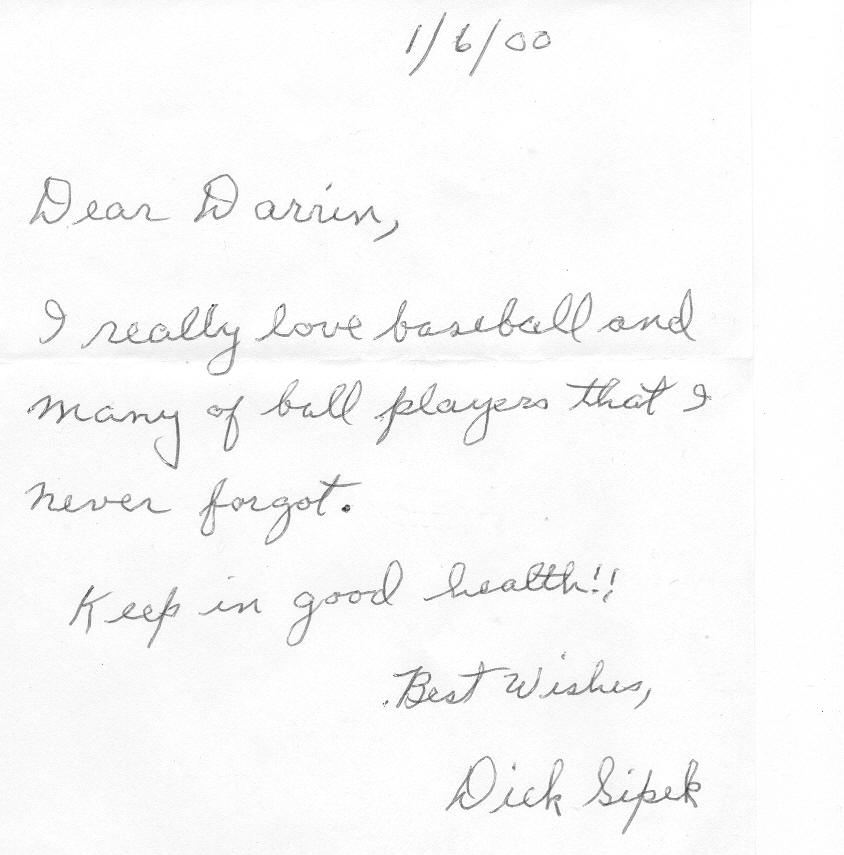 1/6/00
Dear Darrin,
I really love baseball and
many of ball players that I
never forgot.
Keep in good health!!
Best Wishes,
Dick Sipek